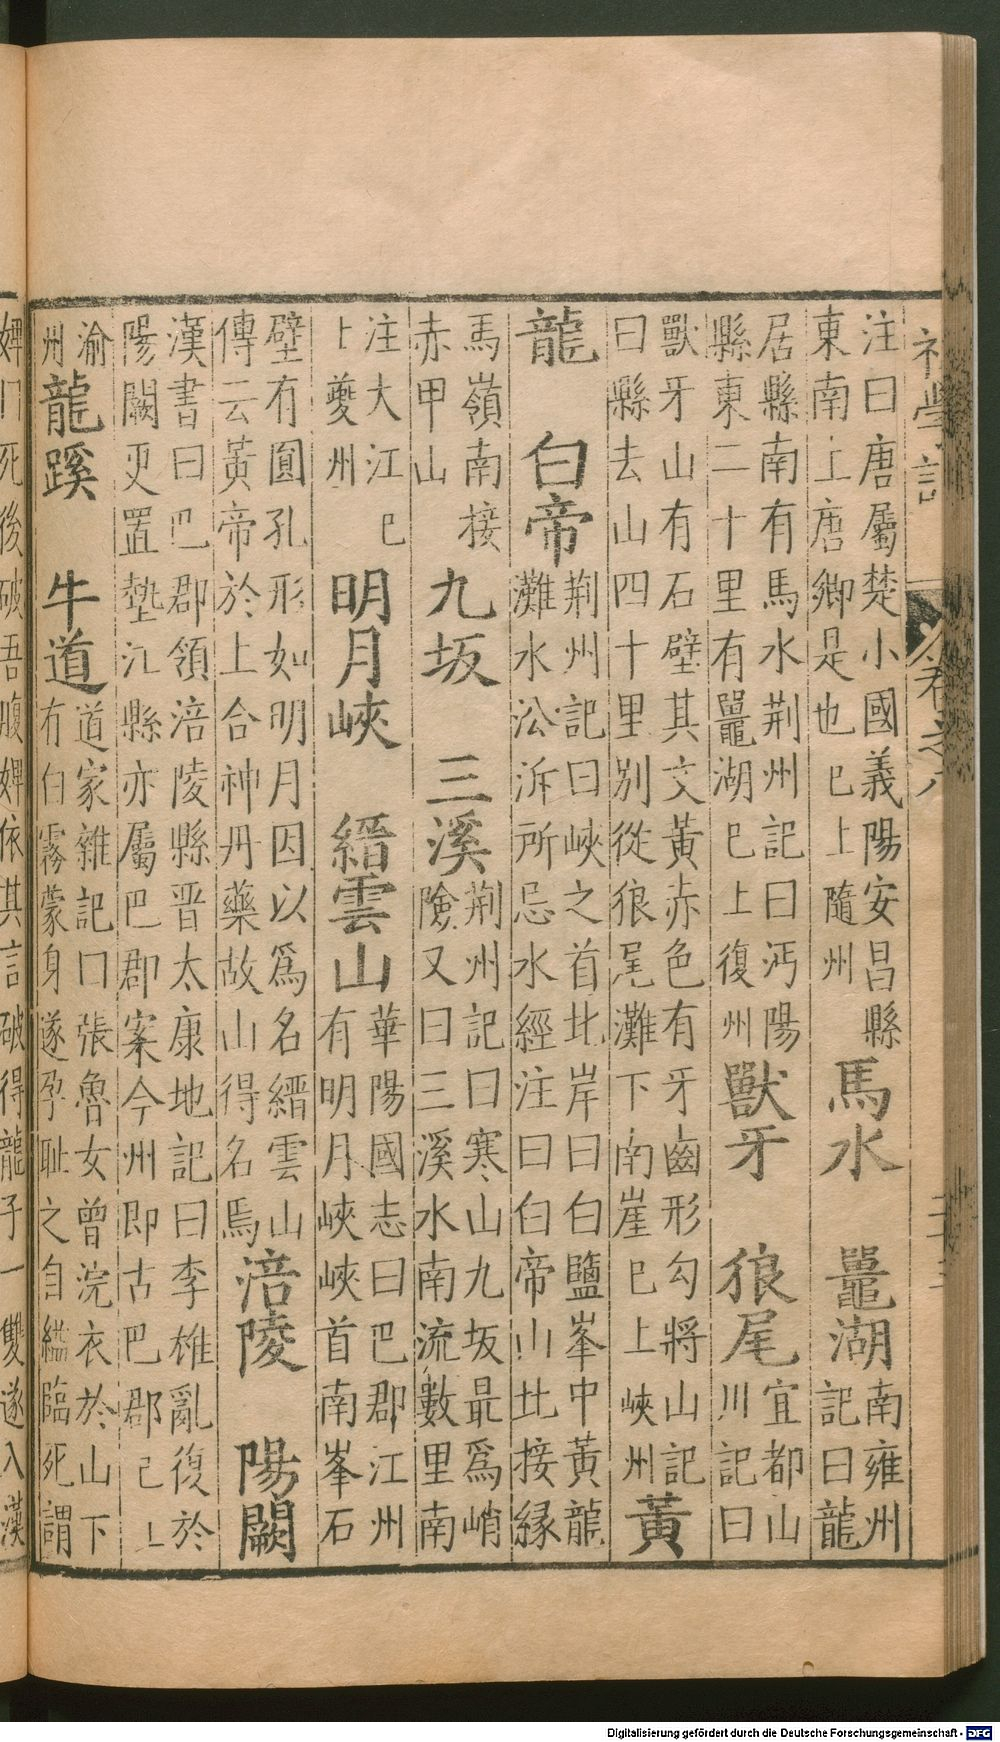 注曰唐屬楚小國義陽安昌縣
東南上唐鄉是也巳上隨州
馬水 鼉湖
南雍州
記曰龍
居縣南有馬水荆州記曰沔陽
縣東二十里有鼉湖巳上復州
獸牙 狼尾
宜都山
川記曰
獸牙山有石壁其文黄赤色有牙齒形勾將山記
曰縣去山四十里别從狼尾灘下南崖巳上峽州
黃
龍 白帝
荆州記曰峽之首北岸曰白鹽峯中黃龍
灘水㳂泝所忌水經注曰白帝山北接緣
馬嶺南接
赤甲山
九坂 三溪
荆州記曰寒山九坂最爲峭
險又曰三溪水南流數里南
注大江巳
上夔州
明月峽 縉雲山
華陽國志曰巴郡江州
有明月峽峽首南峯石
壁有圓孔形如明月因以爲名縉雲山
傳云黃帝於上合神丹藥故山得名焉
涪陵 陽闕
漢書曰巴郡領涪陵縣晋太康地記曰李雄亂復於
陽闕更置墊江縣亦屬巴郡案今州即古巴郡巳上
渝
州
龍蹊 牛道
道家雜記曰張魯女曾浣衣於山下
有白霧蒙身遂孕耻之自縊臨死謂
婢曰死後破吾腹婢依其言破得龍子一雙遂入漢
卷之八